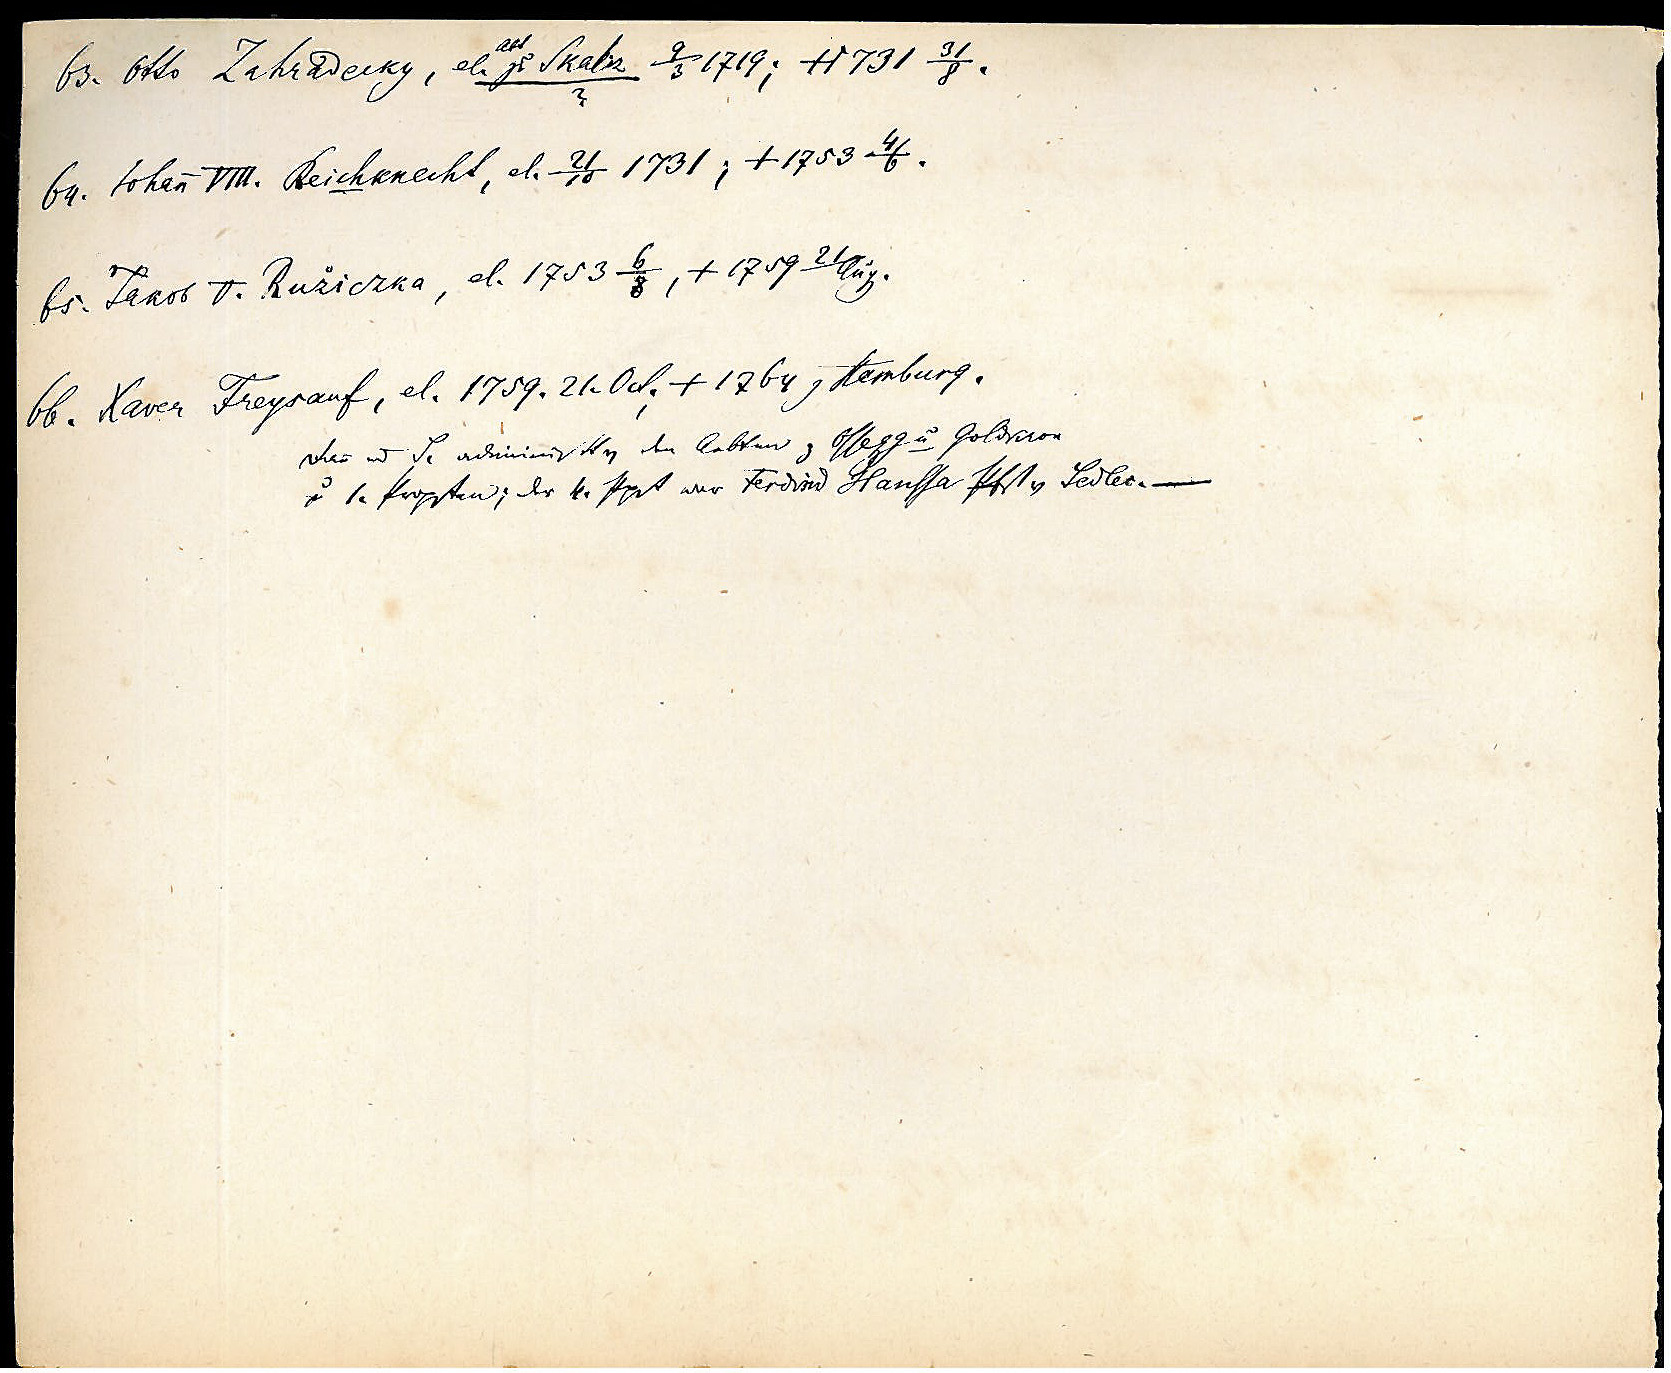 63. Otto Zahradecky, el. abt zu Skaliz 9/3 1719; + 1731 31/8.
?
64. Johan̄ VIII. Reichknecht, el. 21/10 1731; + 1753 4/6.
65. Jakob V. Ružiczka, el. 1753 6/8, + 1759 21 Aug.
66. Xaver Freysauf, el. 1759. 21. Oct., + 1764 z Hamburg.
den Aebten z Ossegg u Goldkron
u der war Ferdind Hanssa v Sedlec. —